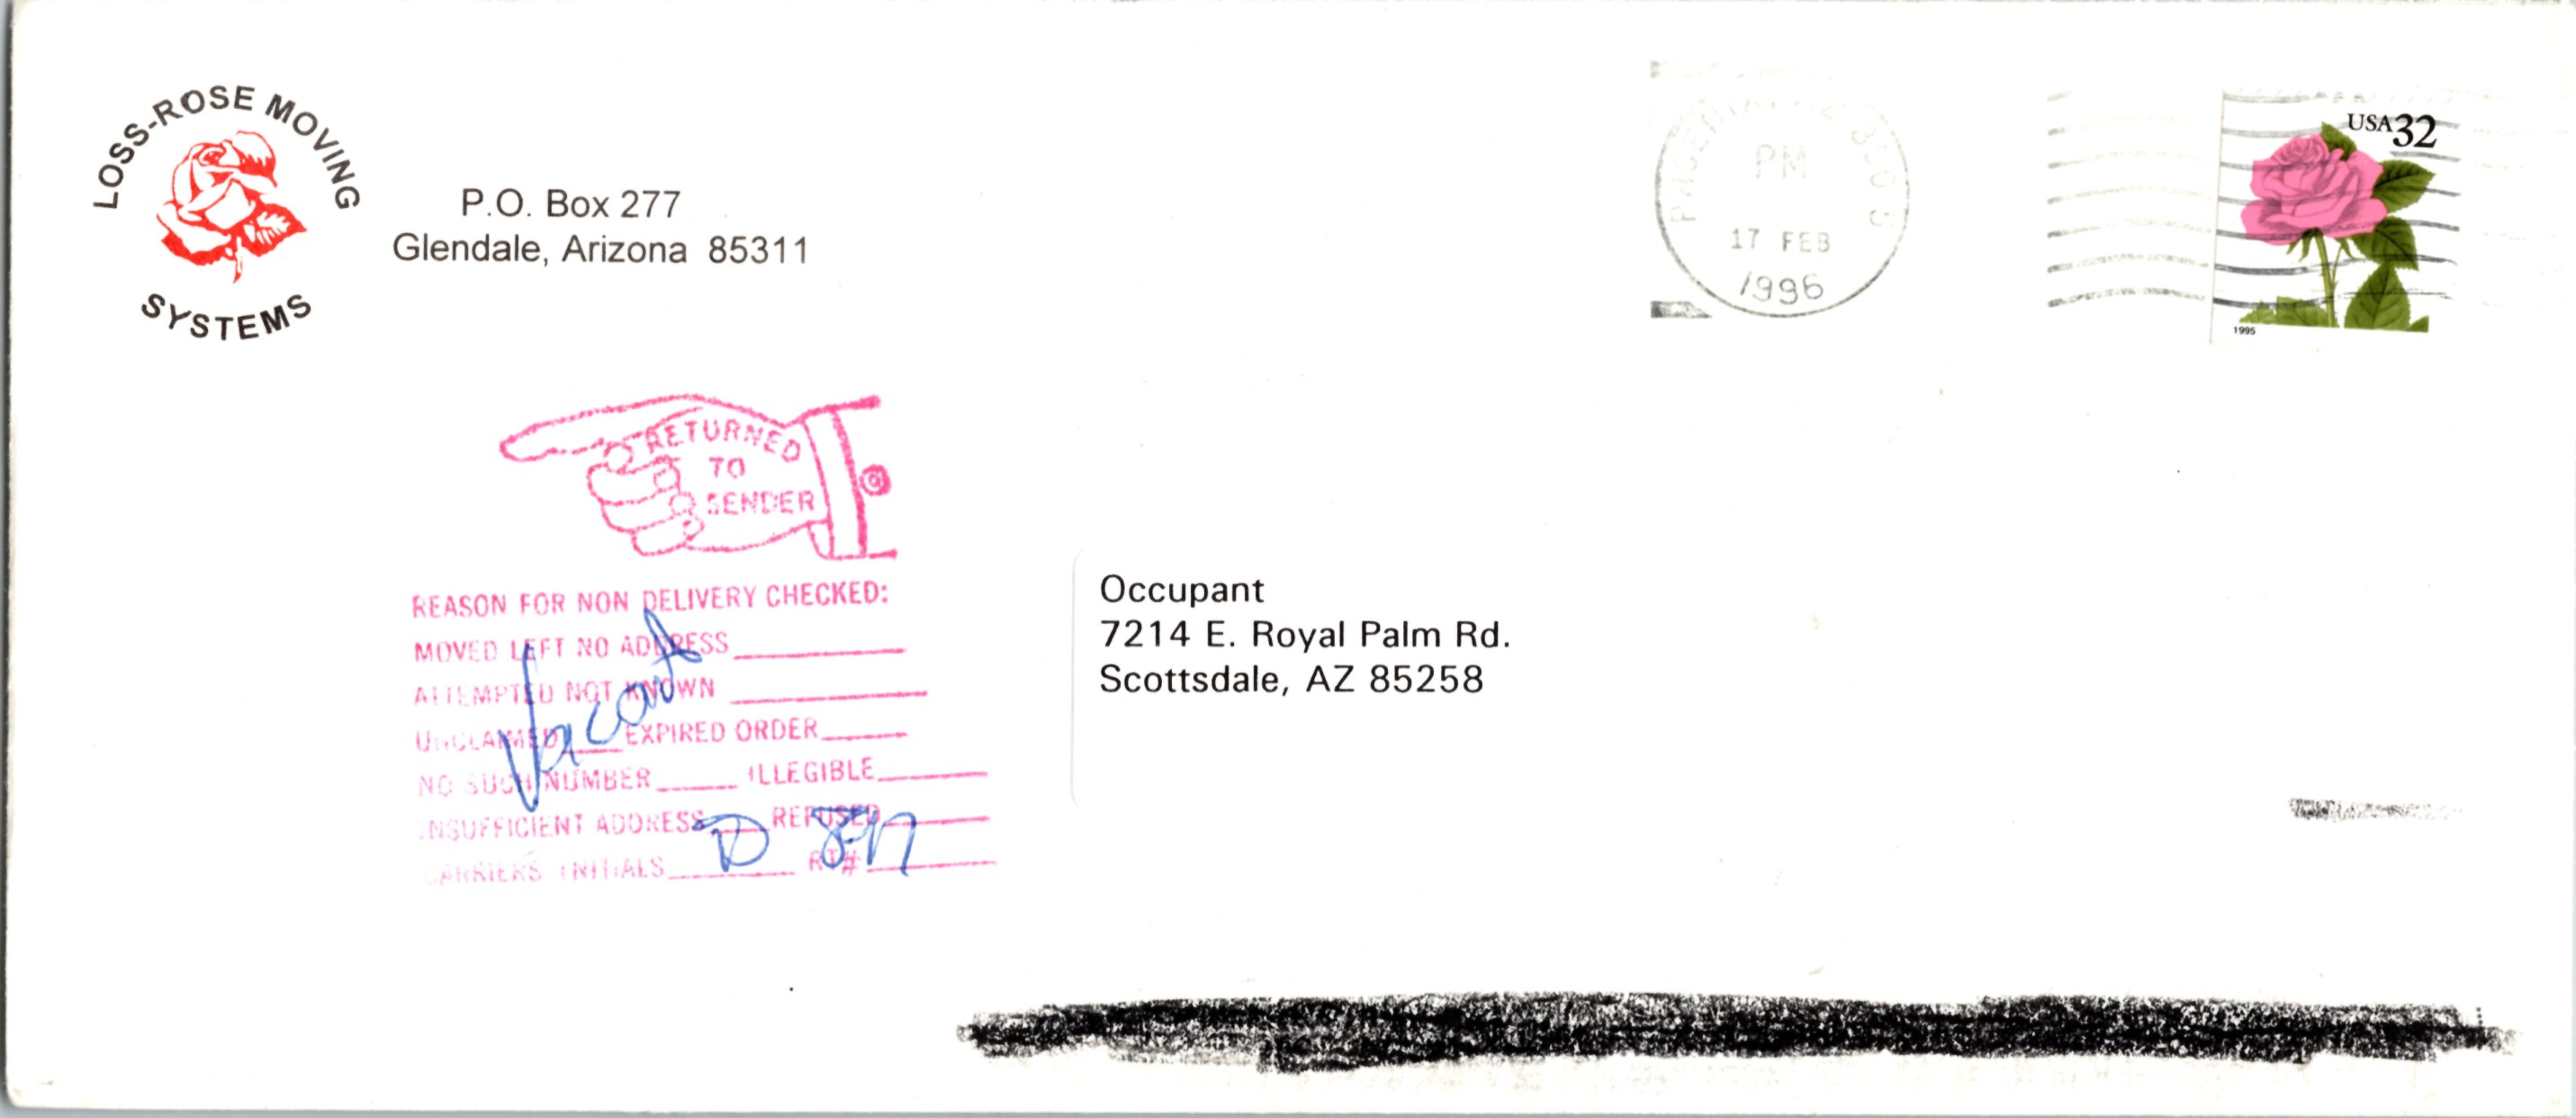 LOSS-ROSE MOVING
SYSTEMS
P.O. Box 277
Glendale, Arizona 85311
PM
17 FEB
1996
USA32
1995
RETURNED
TO
SENDER
REASON FOR NON DELIVERY CHECKED:
MOVED LEFT NO ADDRESS
ATTEMPTED NOT KNOWN
UNCLAIMED EXPIRED ORDER
NO SUCH NUMBER ILLEGIBLE
INSUFFICIENT ADDRESS REFUSED
CARRIERS INITIALS RT#
Vacant
Occupant
7214 E. Royal Palm Rd.
Scottsdale, AZ 85258